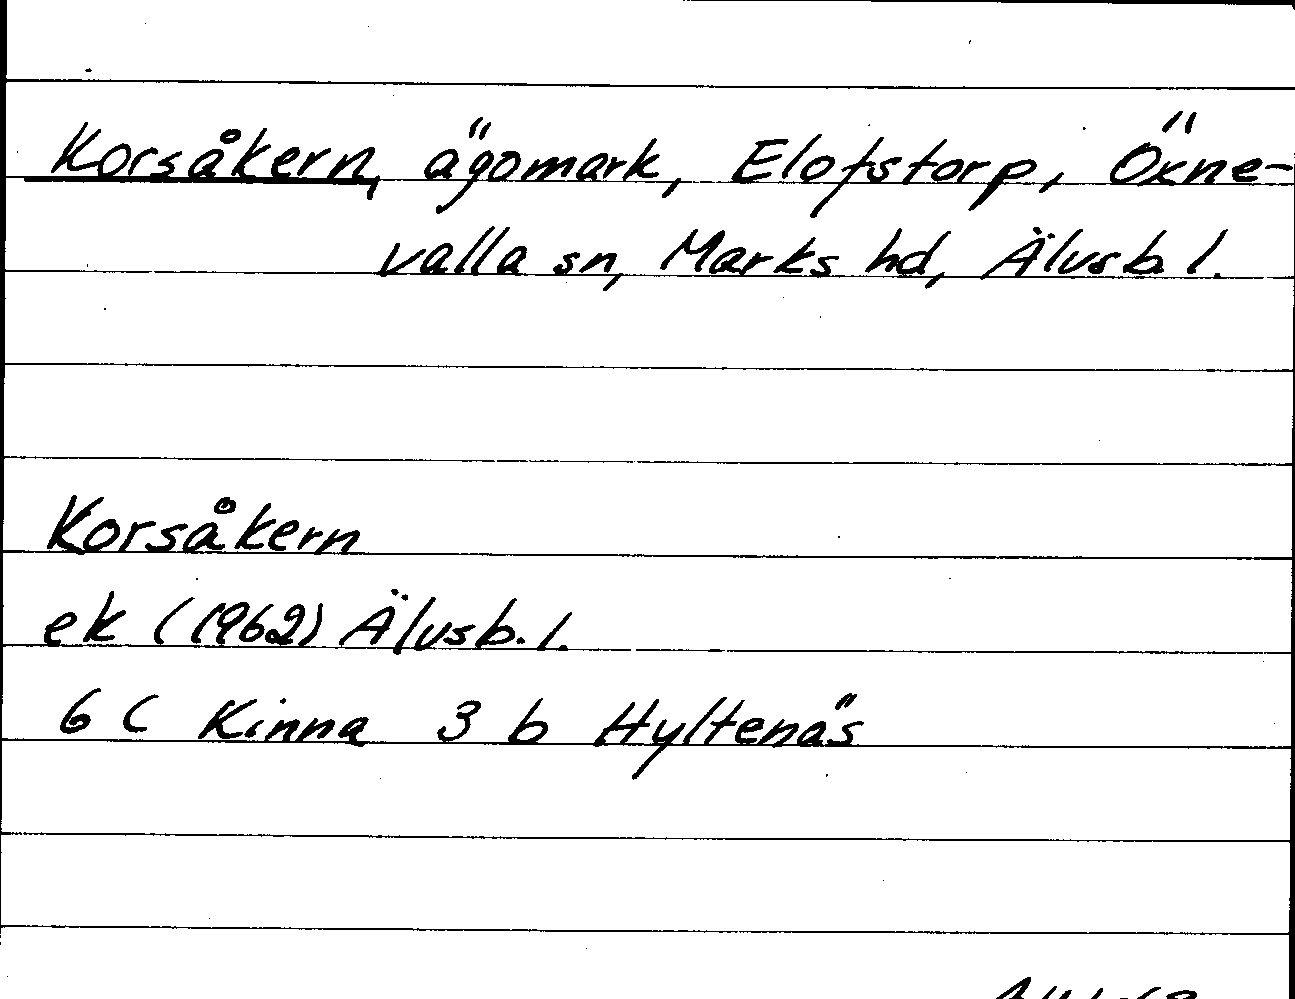 Korsåkern, ägomark, Elofstorp, Öxne-
valla sn, Marks hd, Älvsb. l.
Korsåkern
ek (1962) Älvsb. l.
6 C Kinna 3 b Hyltenäs